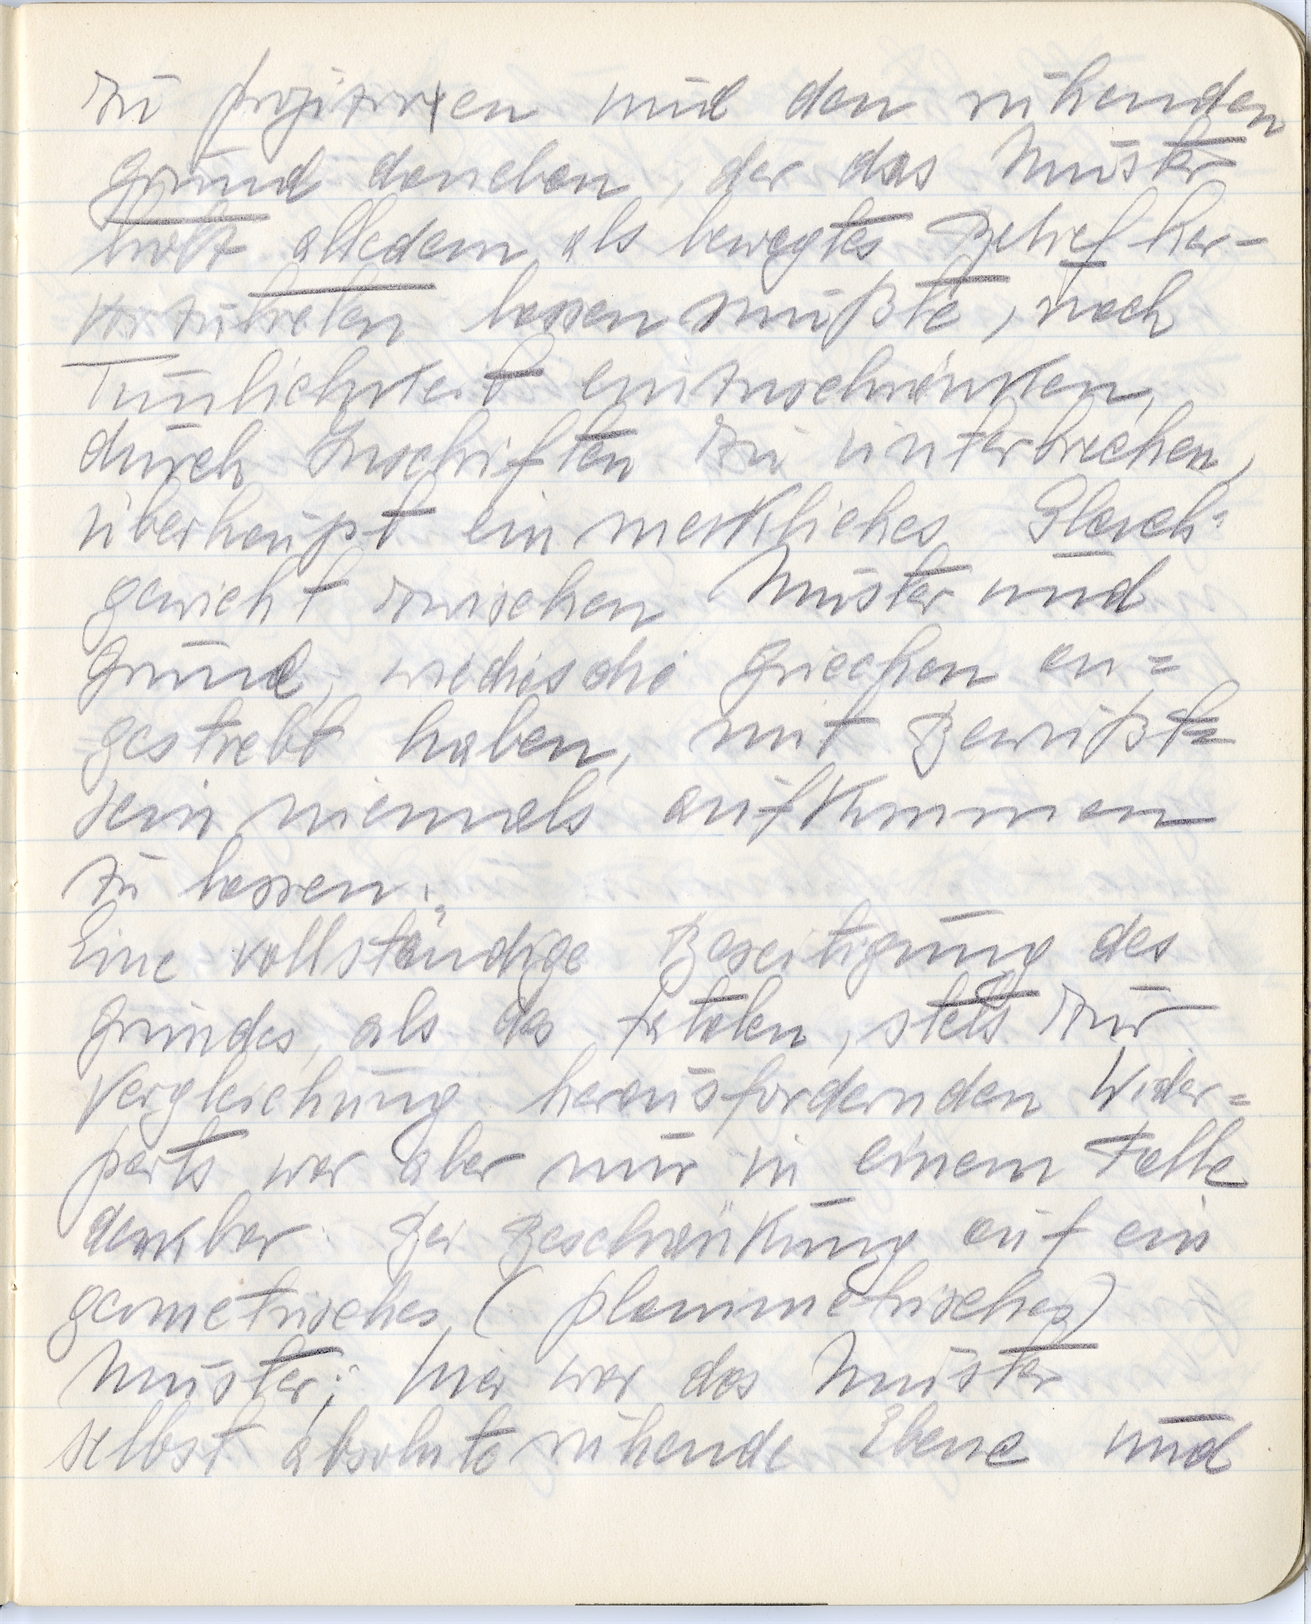 zu projizieren und den ruhenden
Grund daneben, der das Muster
trotz alledem als bewegtes Relief her-
vorzutreten lassen müßte, nach
Tunlichkeit einzuschränken,
durch Inschriften zu unterbrechen,
überhaupt ein merkliches Gleich=
gewicht zwischen Muster und
Grund, wie dies die Griechen an=
gestrebt haben, mit Bewußt=
sein niemals aufkommen
zu lassen.
Eine vollständige Beseitigung des
Grundes, als des fatalen, stets zur
Vergleichung herausfordernden Wider=
parts war aber nur in einem Falle
denkbar: Bei Beschränkung auf ein
geometrisches (planimetrisches)
Muster; hier war das Muster
selbst absolute ruhende Ebene und